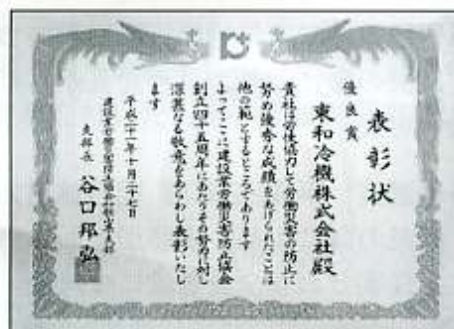 表彰状
優良賞
東和冷機株式会社殿
貴社は労使協力して労働災害の防止に
努め優秀な成績をあげられたことは
他の範とするところであります
よってここに建設業労働災害防止協会
創立四十五周年にあたりその努力に対し
深甚なる敬意をあらわし表彰いたし
ます
平成二十一年十月二十七日
建設業労働災害防止協会
支部長 谷口邦弘